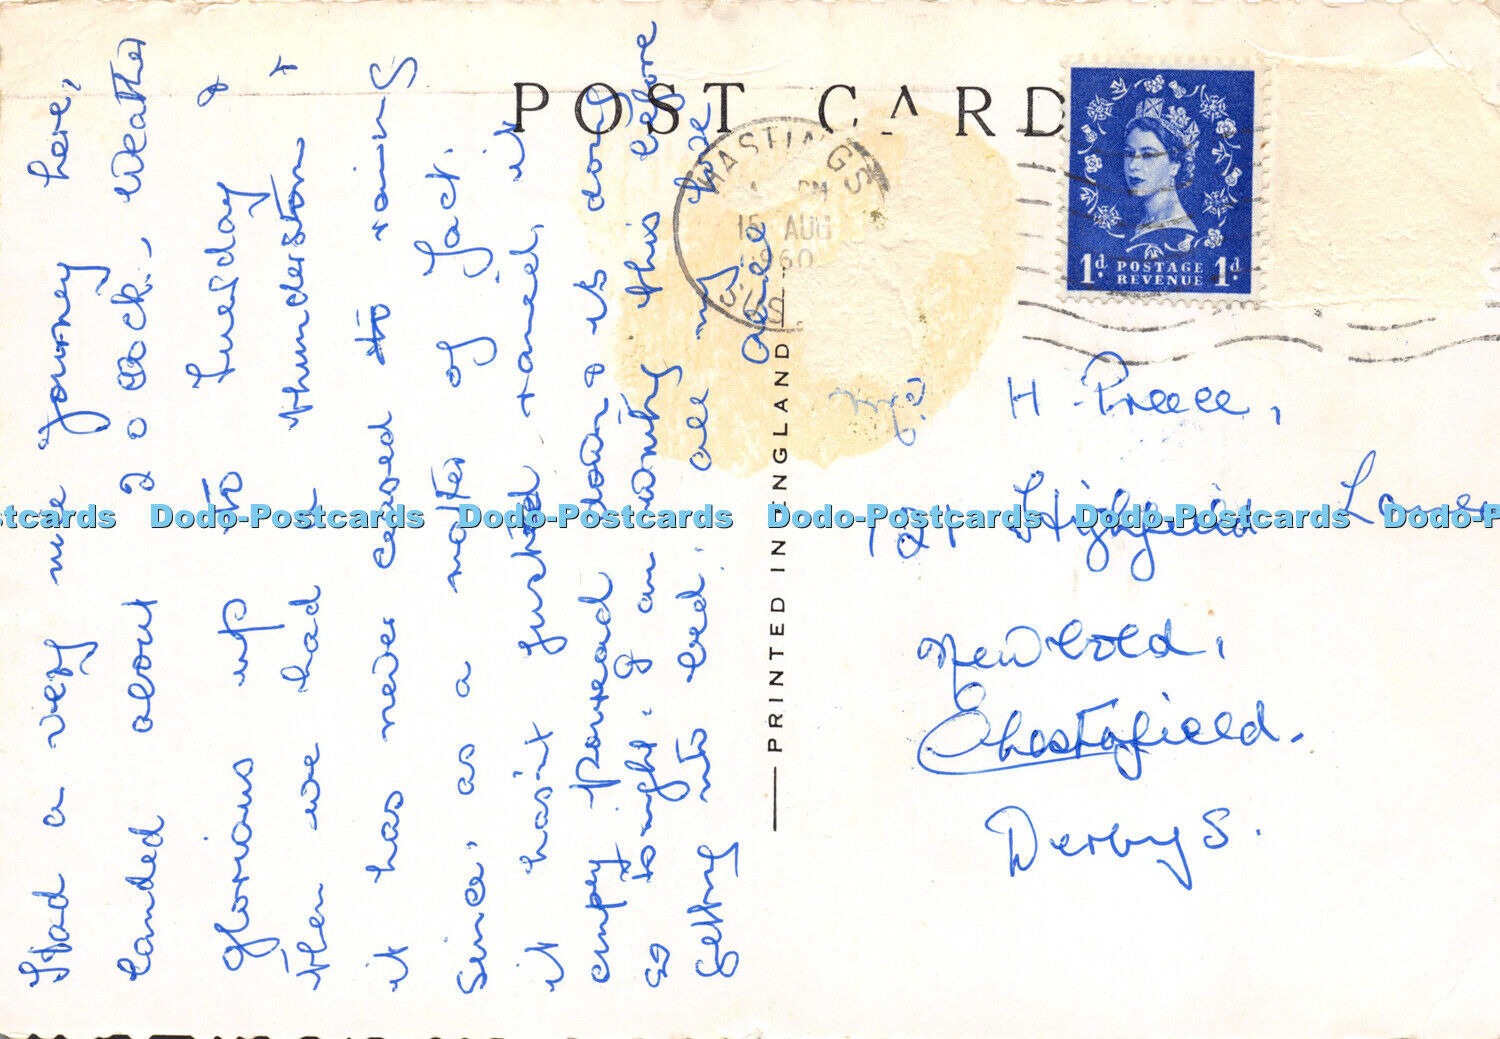 POST CARD
HASTINGS
PM
15 AUG
1960
SUS
1d. POSTAGE REVENUE 1d.
PRINTED IN ENGLAND
Had a very nice journey here,
landed about 2 o clock. Weather
glorious up to Tuesday &
then we had a thunderstorm &
it has never ceased to raining
since, as a matter of fact.
it hasnt just rained, it
simply poured down & is doing
so tonight. I am writing this before
getting into bed. all my love
H. Preece,
121 Highfield Lane
Newbold,
Chesterfield.
Derbys.
Dodo-Postcards Dodo-Postcards Dodo-Postcards Dodo-Postcards